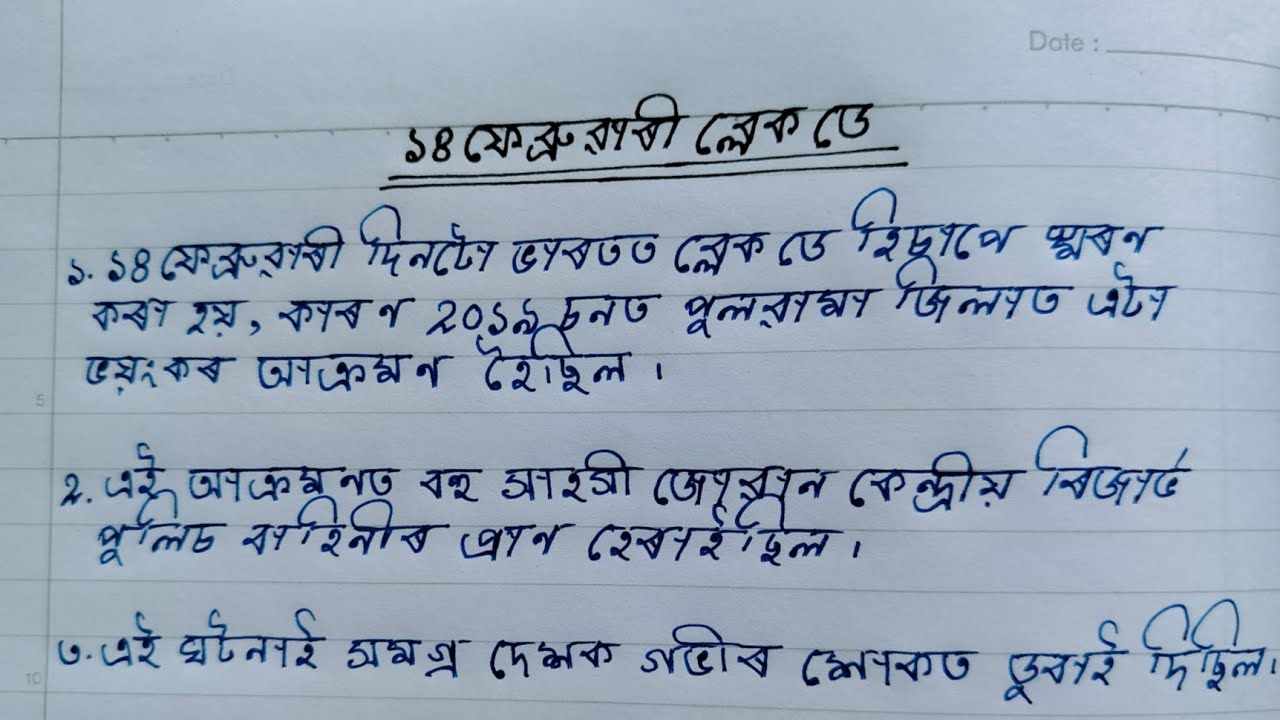 Date :
১৪ ফেব্ৰুৱাৰী ব্লেক ডে
১. ১৪ ফেব্ৰুৱাৰী দিনটো ভাৰতত ব্লেক ডে হিচাপে স্মৰণ
কৰা হয়, কাৰণ ২০১৯ চনত পুলৱামা জিলাত এটা
ভয়ংকৰ আক্ৰমণ হৈছিল।
5
২. এই আক্ৰমনত বহু সাহসী জোৱান কেন্দ্ৰীয় ৰিজাৰ্ভ
পুলিচ বাহিনীৰ প্ৰাণ হেৰাইছিল।
৩. এই ঘটনাই সমগ্ৰ দেশক গভীৰ শোকত ডুবাই দিছিল।
10